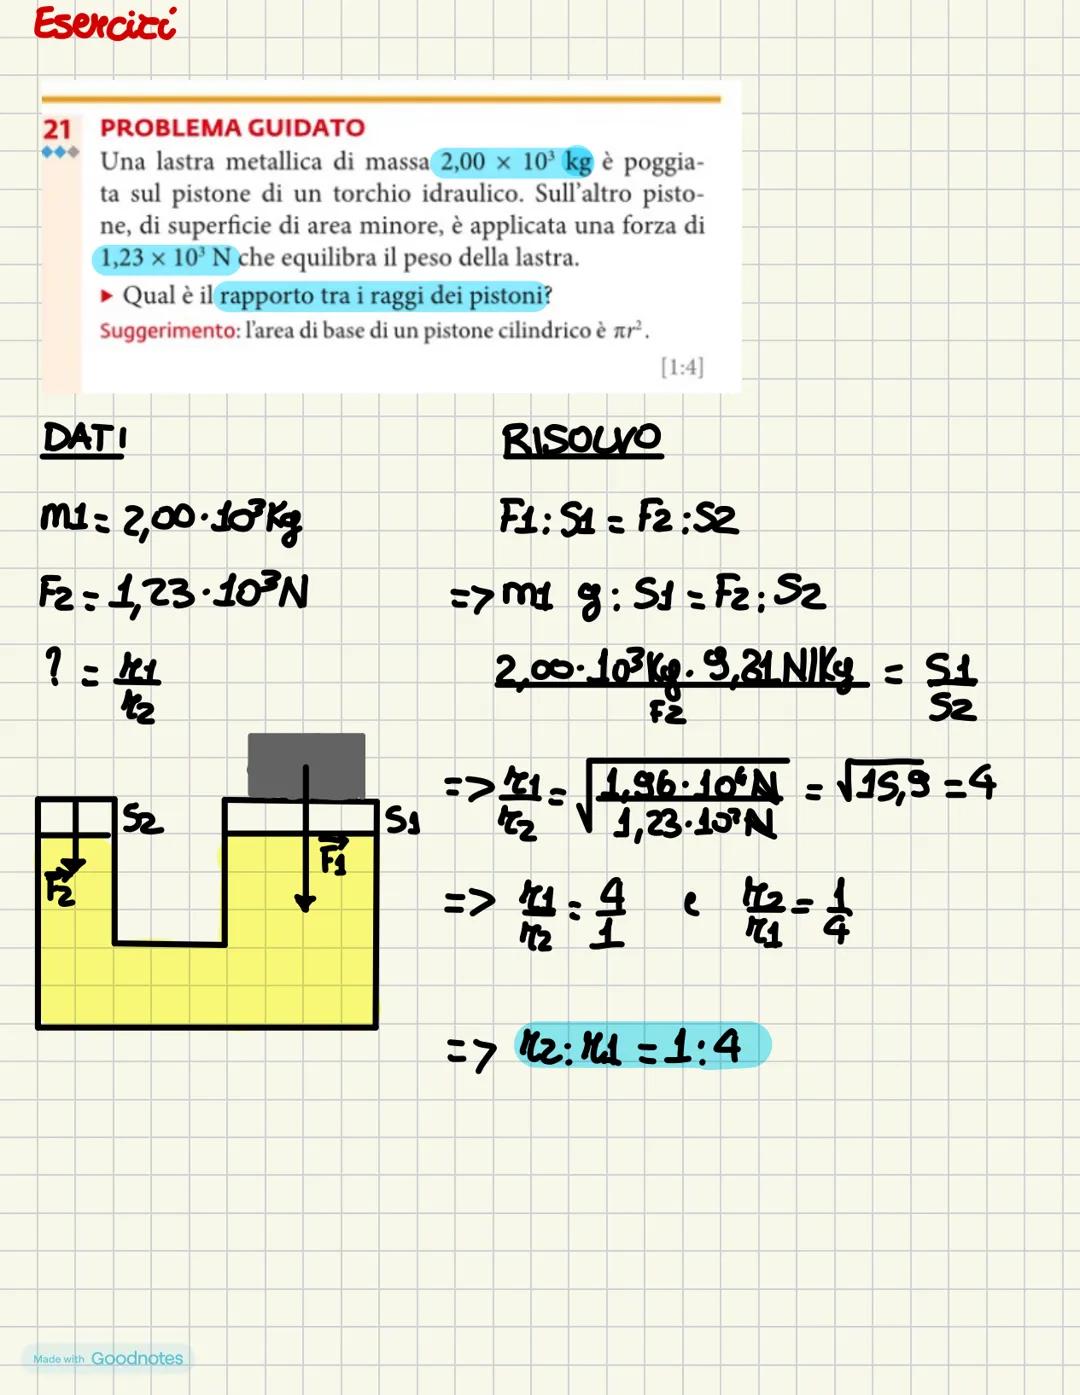 Esercizi
21 PROBLEMA GUIDATO
Una lastra metallica di massa 2,00 × 10³ kg è poggia-
ta sul pistone di un torchio idraulico. Sull'altro pisto-
ne, di superficie di area minore, è applicata una forza di
1,23 × 10³ N che equilibra il peso della lastra.
▸ Qual è il rapporto tra i raggi dei pistoni?
Suggerimento: l'area di base di un pistone cilindrico è πr².
[1:4]
DATI
m1 = 2,00·10³Kg
F2 = 1,23·10³N
? = r1/r2
S2
F2
S1
F1
RISOLVO
F1 : S1 = F2 : S2
=> m1 g : S1 = F2 : S2
2,00·10³Kg · 9,81N/Kg / F2 = S1/S2
=> r1/r2 = √(1,96·10⁴N / 1,23·10³N) = √15,9 = 4
=> r1/r2 = 4/1 e r2/r1 = 1/4
=> r2 : r1 = 1 : 4
Made with Goodnotes